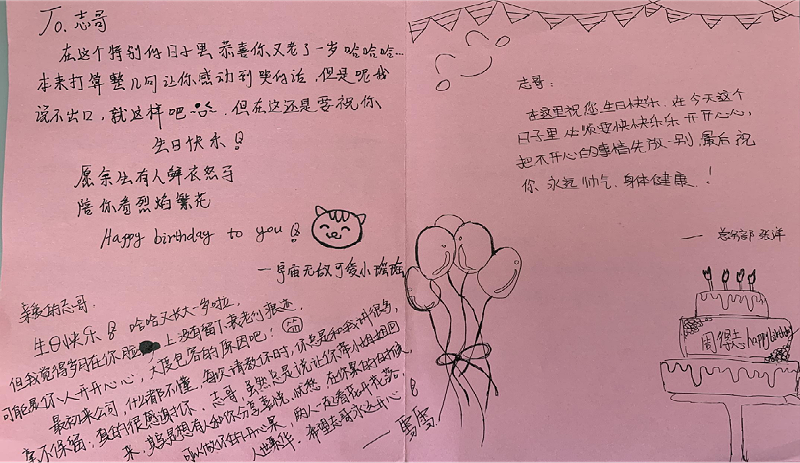 To. 志哥
在这个特别的日子里 恭喜你又老了一岁哈哈哈…
本来打算整几句让你感动到哭的话，但是呢我
说不出口，就这样吧 但在这还是要祝你
生日快乐！
愿余生有人鲜衣怒马
陪你看烈焰繁花
Happy birthday to you！
一宇宙无敌可爱小瑞瑞
亲爱的志哥：
生日快乐！哈哈又长大一岁啦，
但我觉得岁月在你脸上没有留下衰老的痕迹
可能是你人开开心心，大度包容的原因吧！
最初来公司，什么都不懂，每次请教你时，你总是和我讲很多，
毫不保留；真的很感谢你。志哥，虽然总是说让你带小姐姐回
来，其实是想有人和你分享喜悦、忧愁，在你累的时候，
可以做你的开心果，两人一起看花开花落，
人世繁华。希望志哥永远开心！
— 雪雪
志哥：
在这里祝您生日快乐，在今天这个
日子里 必须要快快乐乐 开开心心，
把不开心的事情先放一别，最后祝
你 永远 帅气、身体健康！
— 总务部 张洋
周得志 happy birthday